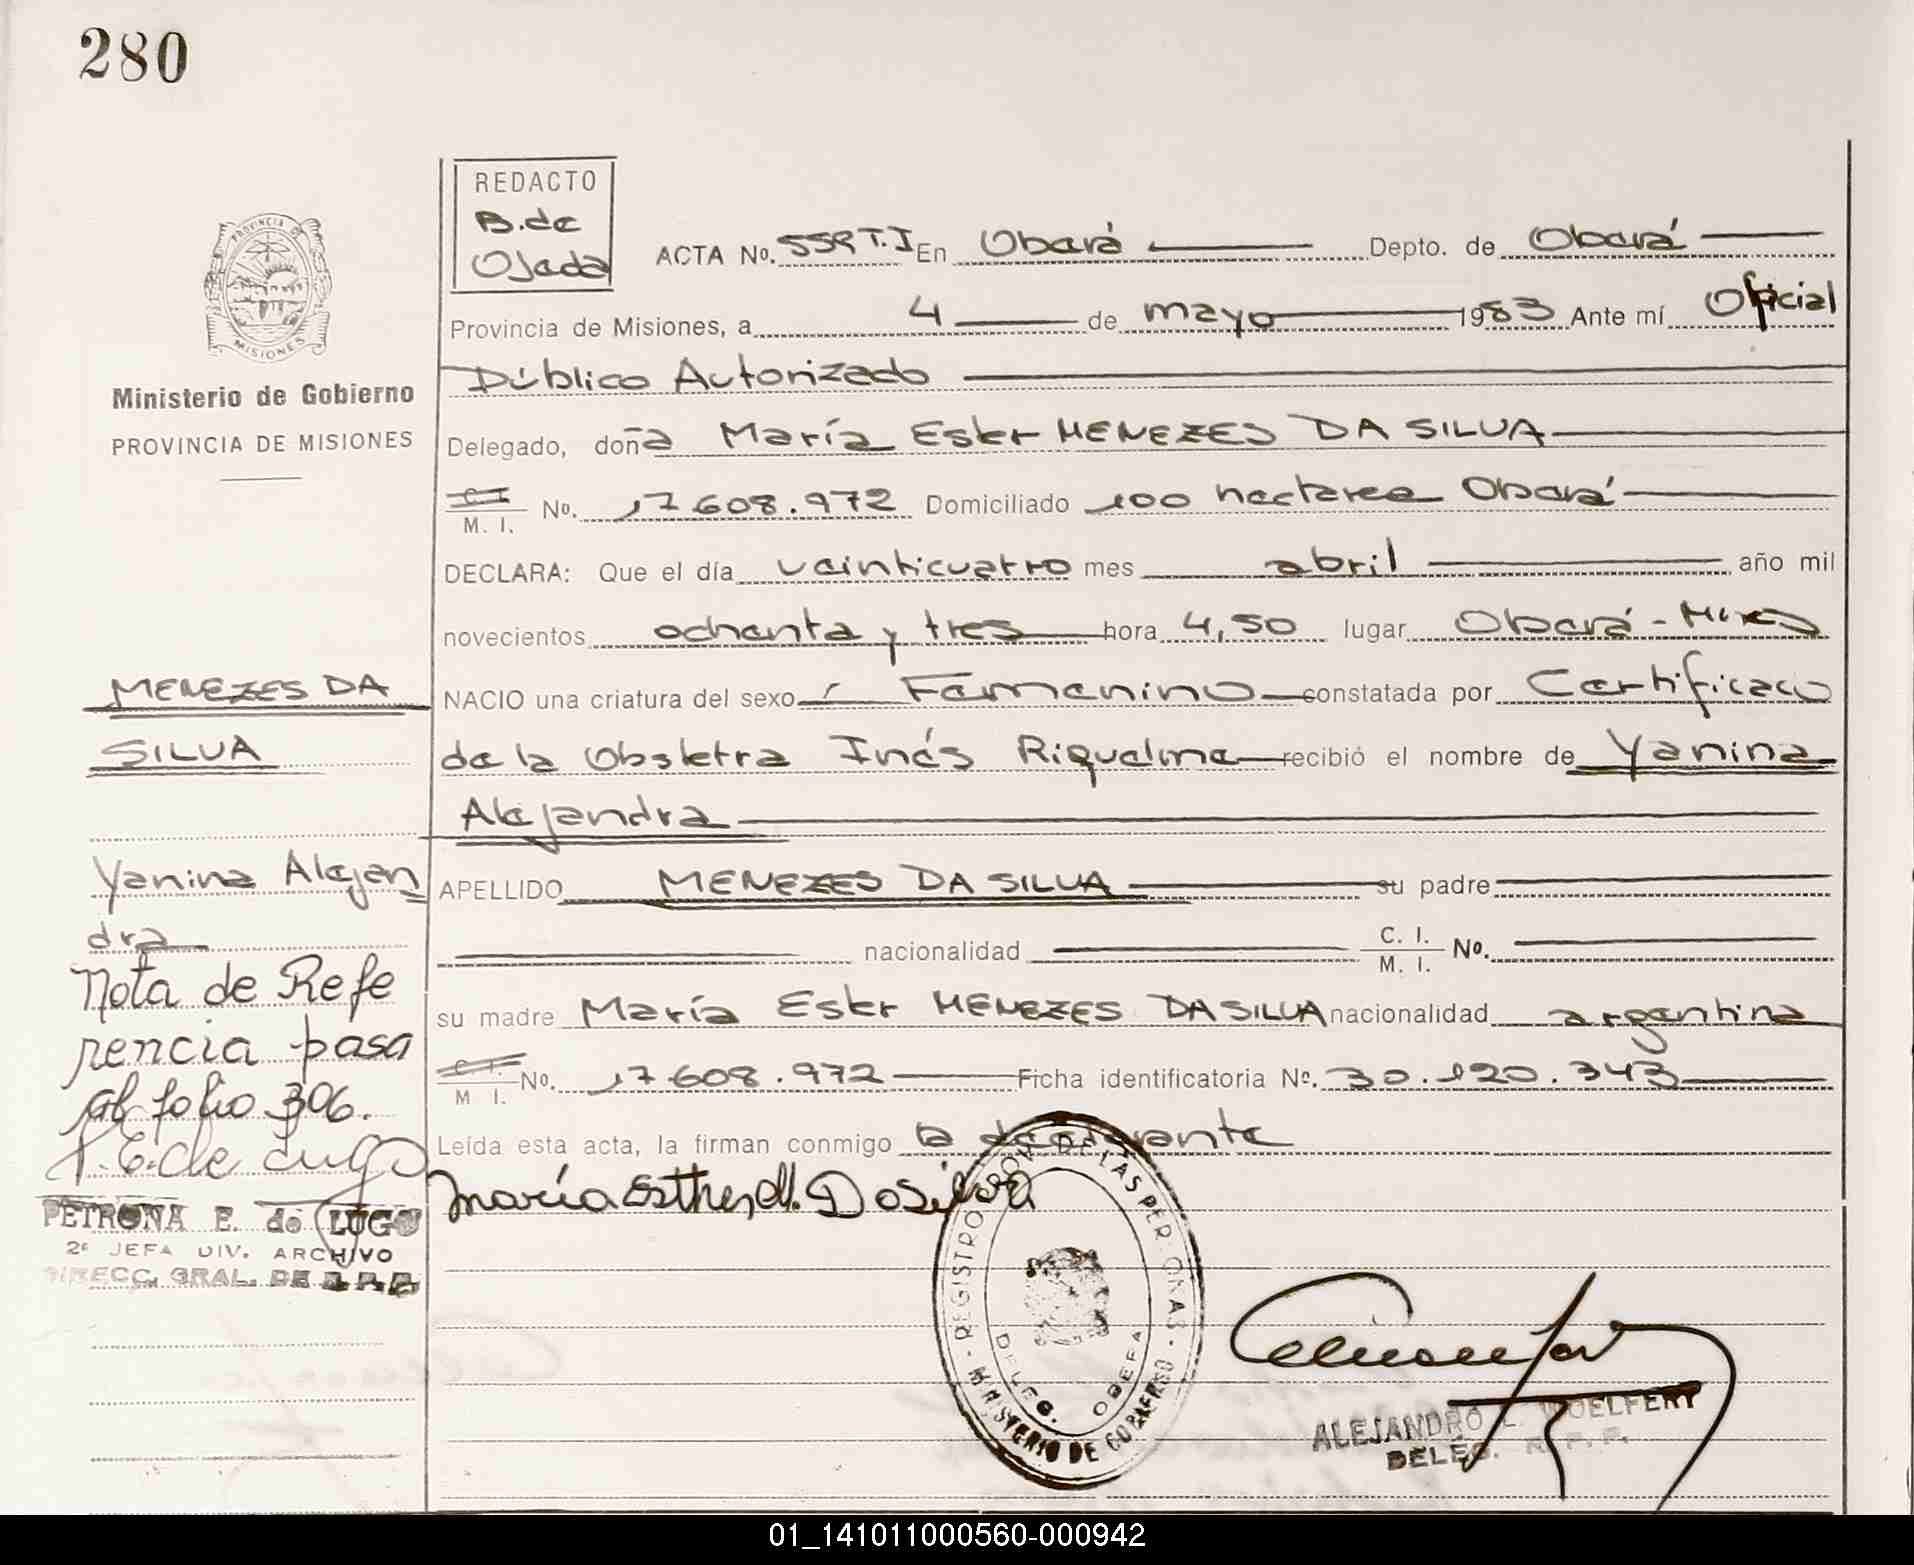 280
REDACTO
B. de
Ojeda
PROVINCIA DE
MISIONES
Ministerio de Gobierno
PROVINCIA DE MISIONES
ACTA No. 559 T.I En Oberá Depto. de Oberá
Provincia de Misiones, a 4 de mayo 1983 Ante mí Oficial
Público Autorizado
Delegado, doña María Ester MENEZES DA SILVA
C. I.
M. I. No. 17.608.972 Domiciliado 100 hectarea Oberá
DECLARA: Que el día veinticuatro mes abril año mil
novecientos ochenta y tres hora 4,50 lugar Oberá - Mnes
NACIO una criatura del sexo Femenino constatada por Certificado
de la Obstetra Inés Riquelme recibió el nombre de Yanina
Alejandra
APELLIDO MENEZES DA SILVA su padre
nacionalidad C. I.
M. I. No.
su madre María Ester MENEZES DA SILVA nacionalidad argentina
C. I.
M I. No. 17.608.972 Ficha identificatoria No. 30.120.343
Leída esta acta, la firman conmigo la declarante
María Esther M. Da Silva
MENEZES DA
SILVA
Yanina Alejan
dra
Nota de Refe
rencia pasa
al folio 306.
P. E. de Lugo
PETRONA E. de LUGO
2ª JEFA DIV. ARCHIVO
DIRECC. GRAL. DE
REGISTRO PROV. DE LAS PERSONAS
DELEG. OBERA
MINISTERIO DE GOBIERNO
ALEJANDRO L. WOELFERT
DELEG. R. P. P.
01_141011000560-000942